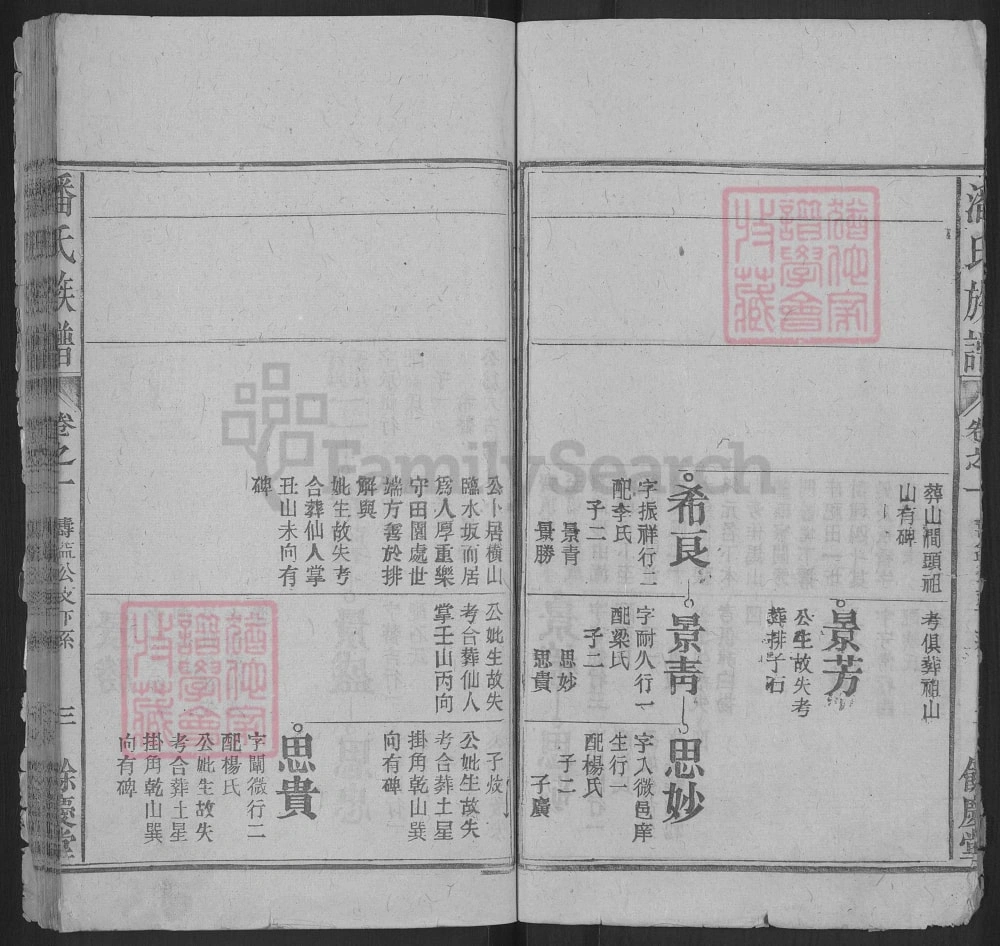 潘氏族譜
卷之一
餘慶堂
葬山門頭祖
山有碑
考俱葬祖山
景芳
公生故失考
葬排子石
希良
字振祥行二
配李氏
子二
景青
景勝
景青
字耐久行一
配梁氏
子二
思妙
思貴
思妙
字入微邑庠
生行一
配楊氏
子二
子廣
公卜居橫山
臨水坂而居
為人厚重樂
守田園處世
端方善於排
解與
妣生故失考
合葬仙人掌
丑山未向有
碑
公妣生故失
考合葬仙人
掌壬山丙向
子效
公妣生故失
考合葬土星
掛角乾山巽
向有碑
思貴
字闡微行二
配楊氏
公妣生故失
考合葬土星
掛角乾山巽
向有碑
潘氏族譜
卷之一
三
餘慶堂
譜學會
特藏
譜學會
特藏
FamilySearch